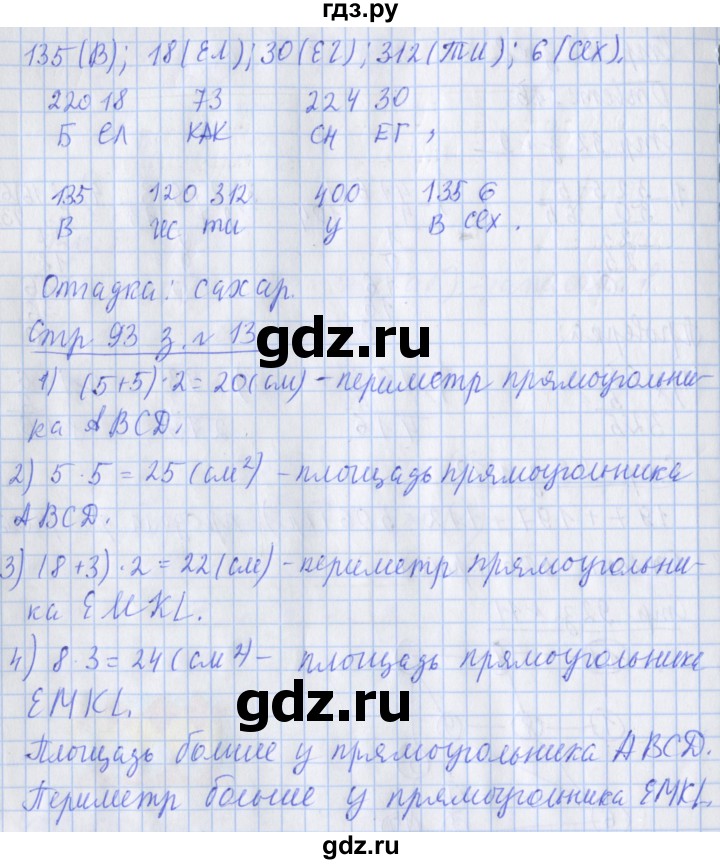 гдз.ру
135 (В); 18 (ЕЛ); 30 (ЕГ); 312 (ТИ); 6 (сех).
220 18 73 224 30
Б ЕЛ КАК СН ЕГ,
135 120 312 400 135 6
В ис ти у В сех.
Отгадка: сахар.
Стр 93 з. № 13
gdz.ru
1) (5+5)·2=20(см) - периметр прямоугольни-
ка ABCD.
2) 5·5=25 (см²) - площадь прямоугольника
ABCD.
3) (8+3)·2=22(см) - периметр прямоугольни-
ка EMKL.
4) 8·3=24(см²) - площадь прямоугольника
EMKL.
gdz.ru
Площадь больше у прямоугольника ABCD.
Периметр больше у прямоугольника EMKL.
gdz.ru